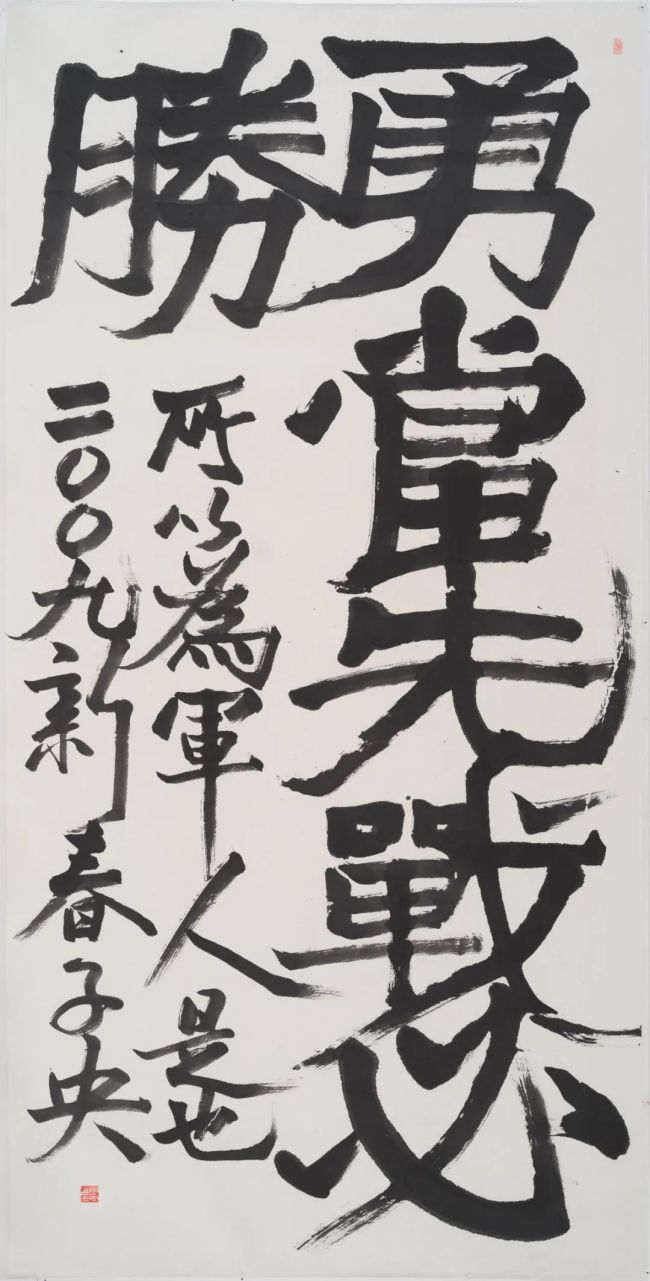 勇當先戰必
勝
所以為軍人是也
二〇〇九新春子央